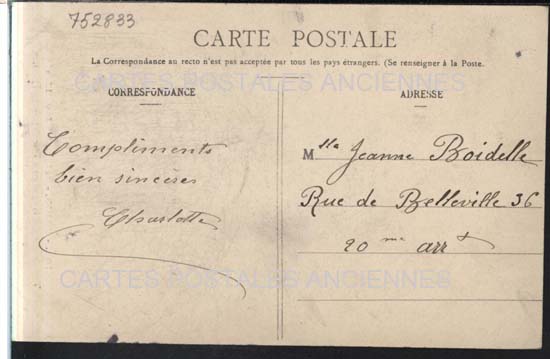 752833
CARTE POSTALE
La Correspondance au recto n'est pas acceptée par tous les pays étrangers. (Se renseigner à la Poste.
CARTES POSTALES ANCIENNES
CORRESPONDANCE
ADRESSE
Compliments
bien sincères
Charlotte
Mlle Jeanne Boidelle
Rue de Belleville 36
20 me arrt
CARTES POSTALES ANCIENNES